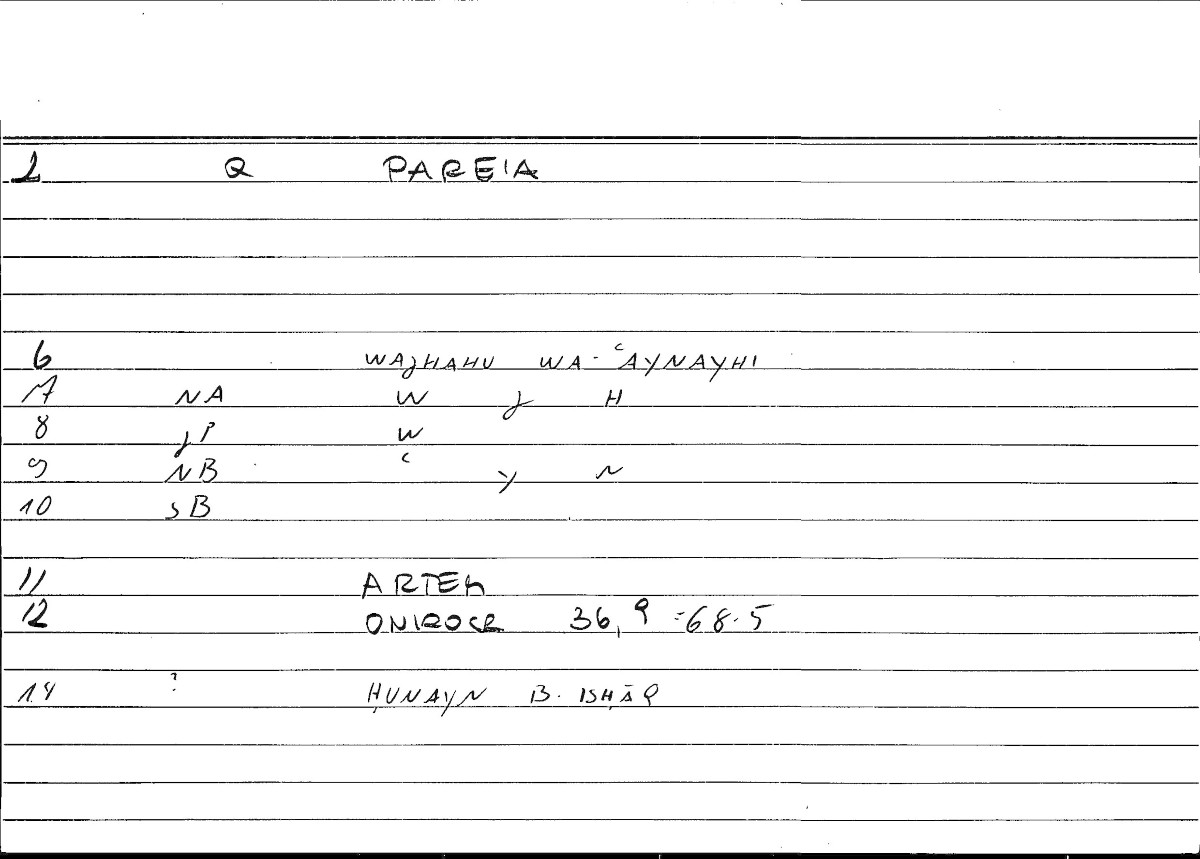 1 Q PAREIA
6 WAJHAHU WA-ʿAYNAYHI
7 NA W J H
8 JP W
9 NB ʿ Y N
10 SB
11 ARTEM
12 ONIROCR 36,9 =68.5
14 ? ḤUNAYN B. ISḤĀQ